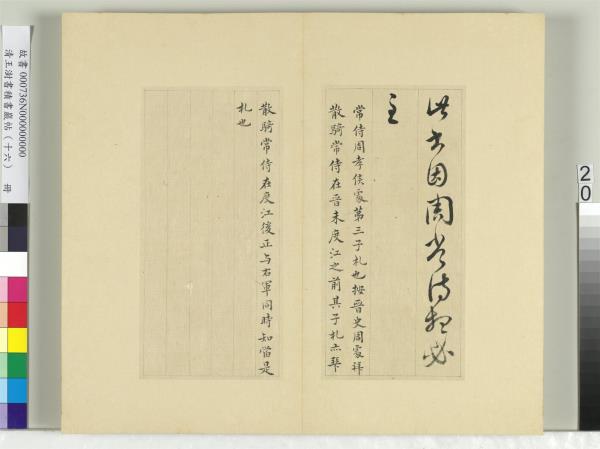 此書因周常侍想必
至
常侍周孝侯處第三子札也按晉史周處拜
散騎常侍在晉未度江之前其子札亦拜
散騎常侍在度江後正与右軍同時知當是
札也
故書 000736N000000000
清王澍書積書巖帖(十六) 冊
20